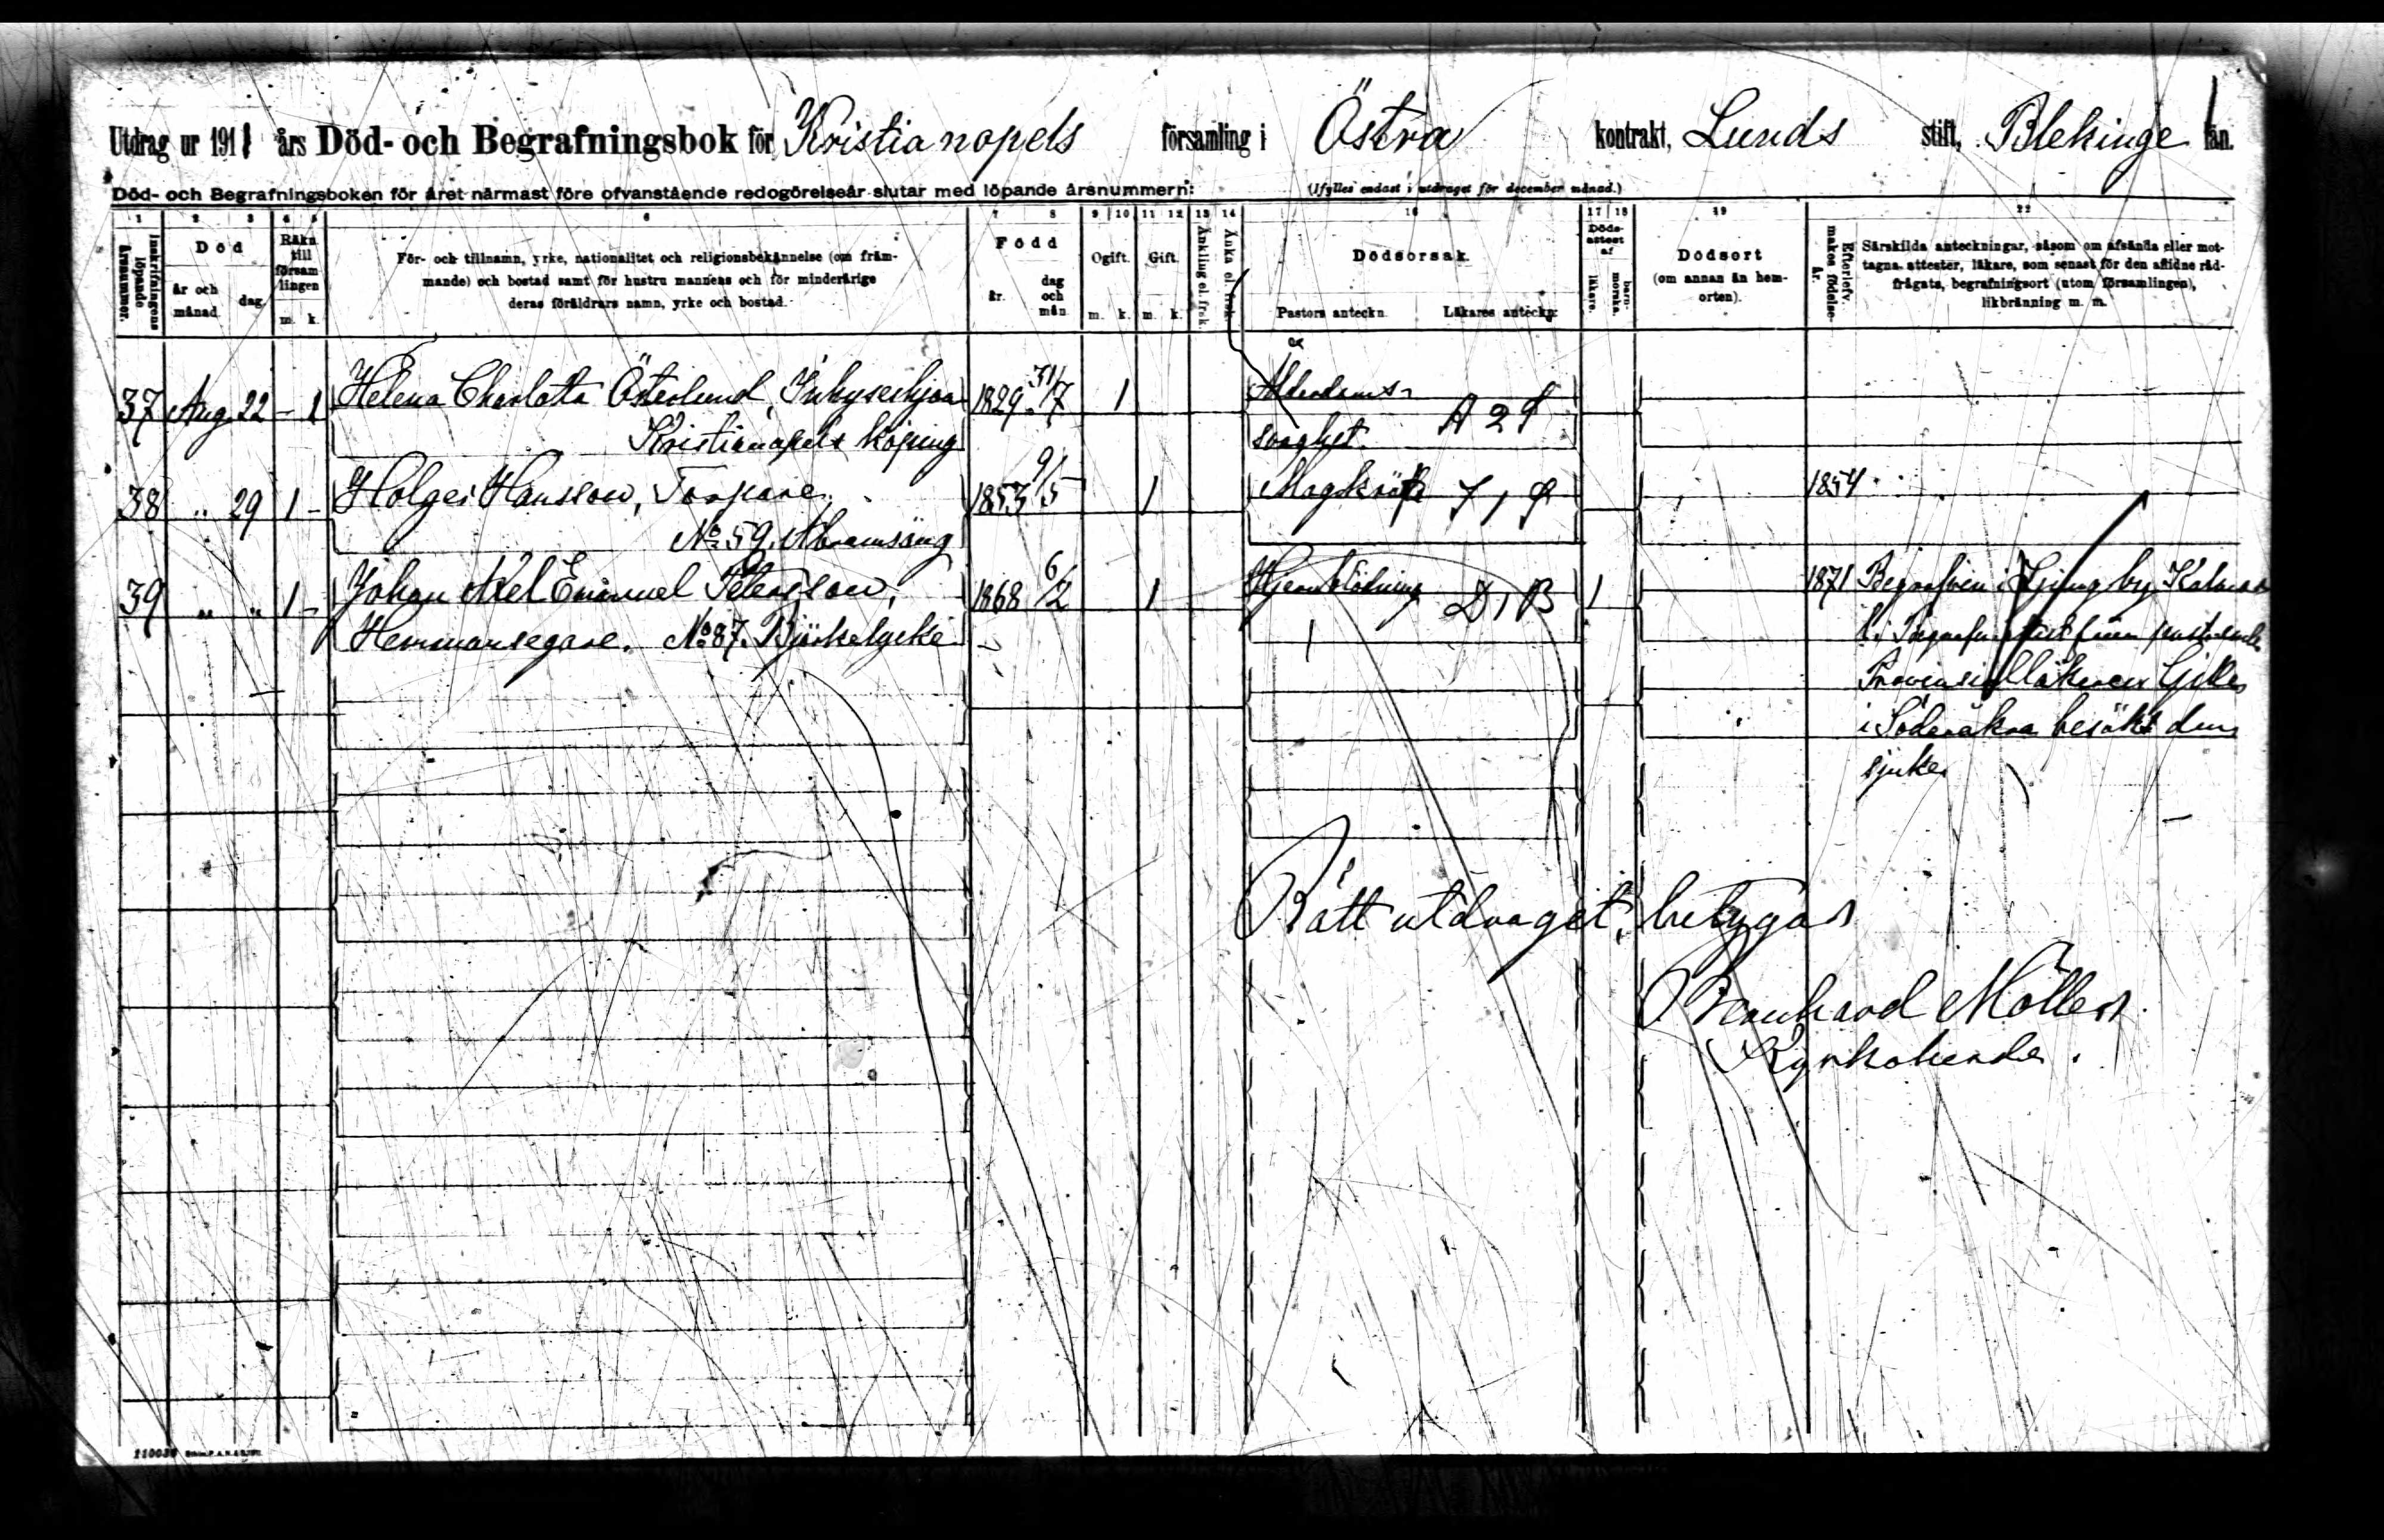 Utdrag ur 1911 års Död- och Begrafningsbok för Kristianopels församling i Östra kontrakt, Lunds stift, Blekinge län.
Död- och Begrafningsboken för året närmast före ofvanstående redogörelseår slutar med löpande årsnummern: (Ifylles endast i utdraget för december månad.)
1 2 3 4 5 6 7 8 9 10 11 12 13 14 16 17 18 19 22
Inskrifningens löpande årsnummer.
Död
år och månad
dag
Räkn. till församlingen
m. k.
För- och tillnamn, yrke, nationalitet och religionsbekännelse (om främ-
mande) och bostad samt för hustru mannens och för minderårige
deras föräldrars namn, yrke och bostad.
Född
år.
dag och mån.
Ogift.
m. k.
Gift.
m. k.
Änkling el. frsk.
Änka el. frsk.
Dödsorsak.
Pastors anteckn. Läkares anteckn.
Döds-attest af
läkare.
barn-morska.
Dödsort
(om annan än hem-
orten).
Efterlefv. makes födelse-år.
Särskilda anteckningar, såsom om afsända eller mot-
tagna attester, läkare, som senast för den aflidne råd-
frågats, begrafningsort (utom församlingen),
likbränning m. m.
37 Aug. 22 - 1 Helena Charlotta Österlund, Inhyseshjon 1829 31/7 1 Ålderdoms-
Kristianopels köping svaghet. A 2
38 " 29 1 - Holger Hansson, Torpare, 1853 9/5 1 Magkräfta 1854
No 59. Abramsäng
39 " " 1 - Johan Axel Emanuel Petersson, 1868 6/2 1 Hjernblödning D, B 1 1871 Begrafven i Ljungby Kalmar
Hemmansegare. No 87. Björkelycke
Provinsialläkaren
i Söderåkra besökt den
sjuke.
Rätt utdraget, betygar
Bernhard Möller
Kyrkoherde.